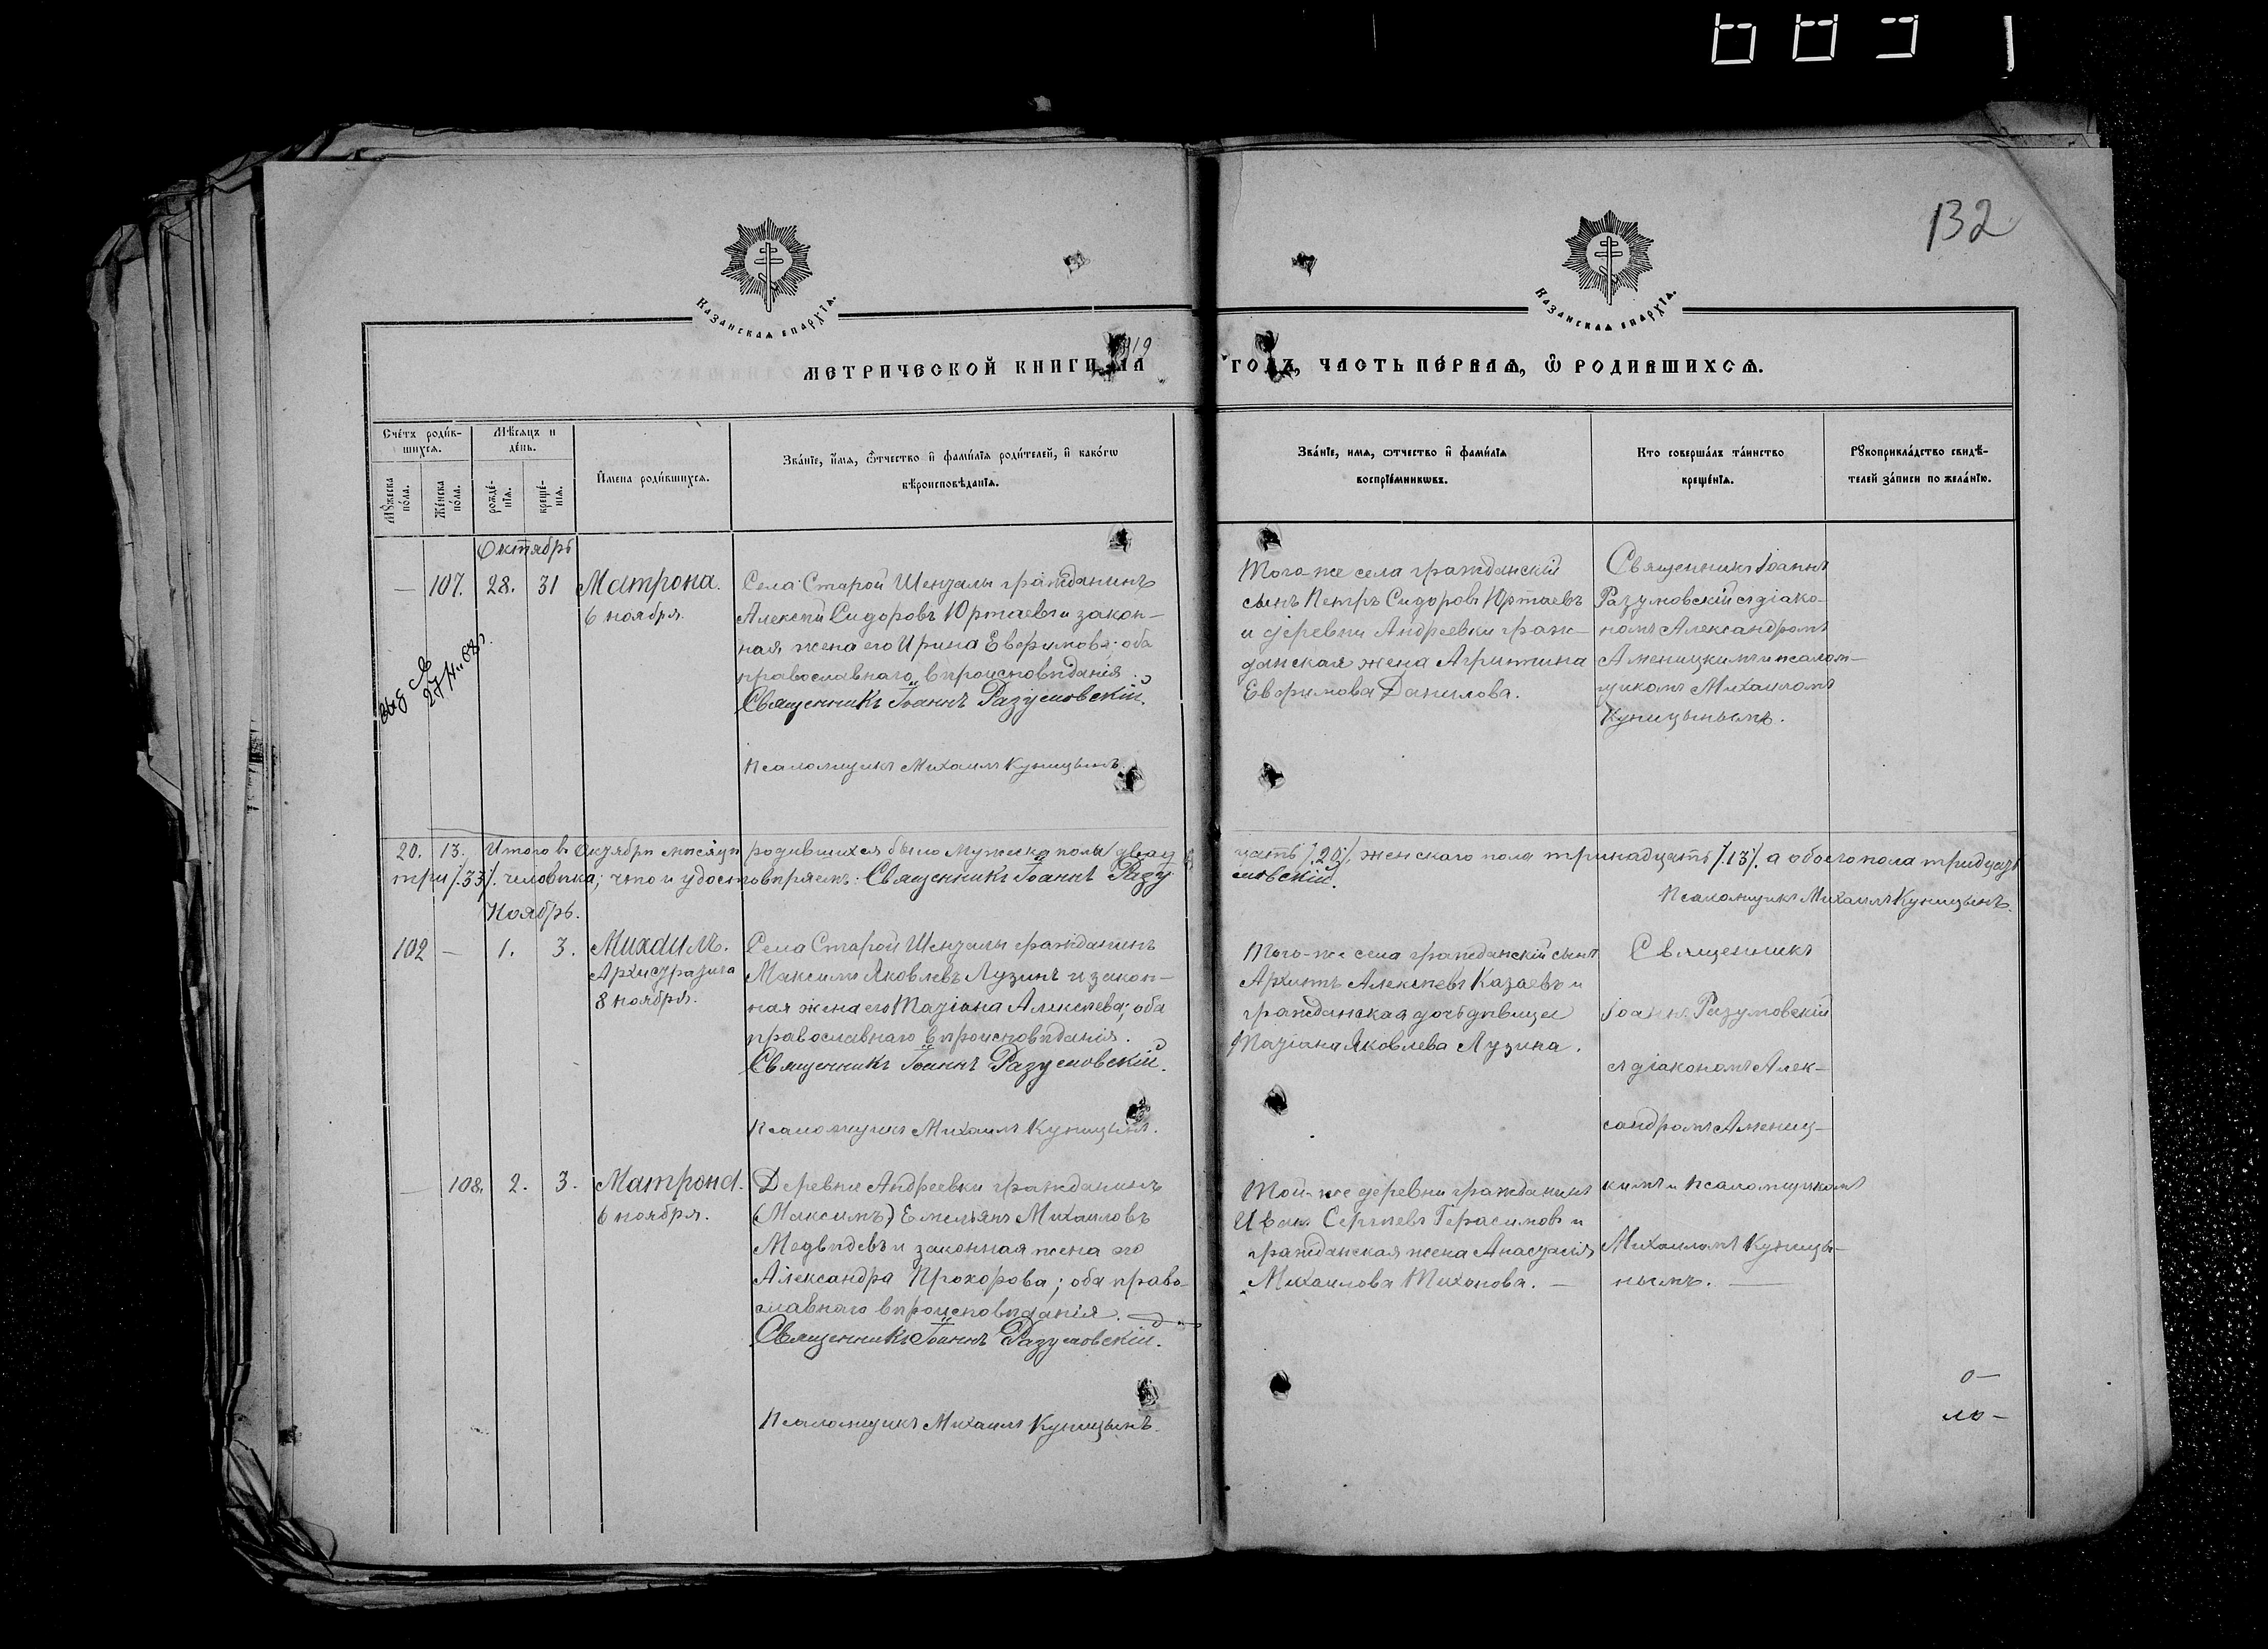 132
Казанская епархїѧ.
Казанская епархїѧ.
МЕТРИЧЕСКОЙ КНИГИ НА 1919 ГОДЪ, ЧАСТЬ ПЕ́РВАѦ, Ѽ РОДИВШИХСѦ.
Сче́тъ роди́в-
шихсѧ.
Мѣ́сѧцъ и
де́нь.
Мꙋ́жеска
по́ла.
Же́нска
по́ла.
рожде́-
нїѧ.
креще́-
нїѧ.
И҆мена роди́вшихсѧ.
Зва́нїе, и҆́мѧ, ѻ҆́тчество и҆ фами́лїѧ роди́телей, и҆ како́гѡ
вѣроисповѣ́данїѧ.
Зва́нїе, имѧ, ѻтчество и҆ фами́лїѧ
воспрїе́мникѡвъ.
Кто соверша́лъ та́инство
креще́нїѧ.
Рꙋкоприкла́дство свидѣ́-
телей за́писи по жела́нїю.
Октябрь
— 107. 28. 31 Матрона.
6 ноября.
Села Старой Шенталы гражданинъ
Алексѣй Сидоровъ Юртаевъ и закон-
ная жена его Ирина Евфимова; оба
православнаго вѣроисповѣданія
Священникъ Іоаннъ Разумовскій.
Псаломщикъ Михаилъ Куницынъ.
Того-же села гражданскій
сынъ Петръ Сидоровъ Юртаевъ
и деревни Андреевки граж-
данская жена Агрипина
Евфимова Данилова.
Священникъ Іоаннъ
Разумовскій съ діако-
номъ Александромъ
Аменицкимъ и псалом-
щикомъ Михаиломъ
Куницынымъ.
20. 13. Итого въ Октябрѣ мѣсяцѣ родившихся было мужеска пола двадцать /.20/. женскаго пола тринадцать /.13/. а обоего пола тридцать
три /.33/. человѣка; что и удостовѣряемъ: Священникъ Іоаннъ Разумовскій.
Псаломщикъ Михаилъ Куницынъ.
Ноябрь.
102 — 1. 3. Михаилъ.
Архистратига
8 ноября.
Села Старой Шенталы гражданинъ
Максимъ Яковлевъ Лузинъ и закон-
ная жена его Татіана Алексѣева; оба
православнаго вѣроисповѣданія.
Священникъ Іоаннъ Разумовскій.
Псаломщикъ Михаилъ Куницынъ.
Того-же села гражданскій сынъ
Архипъ Алексѣевъ Казаевъ и
гражданская дочь дѣвица
Татіана Яковлева Лузина.
Священникъ
Іоаннъ Разумовскій
съ діакономъ Алек-
сандромъ Амениц-
кимъ и псаломщикомъ
Михаиломъ Куницы-
нымъ. —
— 108. 2. 3. Матрона.
6 ноября.
Деревни Андреевки гражданинъ
(Максимъ) Емельянъ Михаиловъ
Медвѣдевъ и законная жена его
Александра Прохорова; оба право-
славнаго вѣроисповѣданія.
Священникъ Іоаннъ Разумовскій.
Псаломщикъ Михаилъ Куницынъ.
Той-же деревни гражданинъ
Иванъ Сергѣевъ Герасимовъ и
гражданская жена Анастасія
Михаилова Тихонова. —